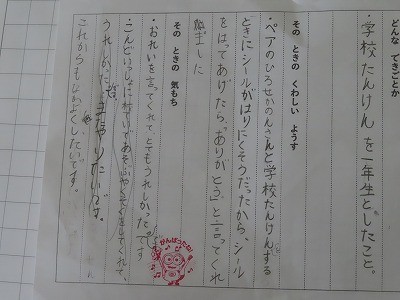 どんな できごとか
・学校たんけんを一年生としたこと。
その ときの くわしい ようす
・ペアのひろせかのんさんと学校たんけんする
ときにシールがはりにくそうだったから、シール
をはってあげたら、「ありがとう」と言ってくれ
ました
その ときの 気もち
・おれいを言ってくれて、とてもうれしかったです
・こんどいっしょに
うれしかった
これからも なかよくしたいです。
がんばったね!